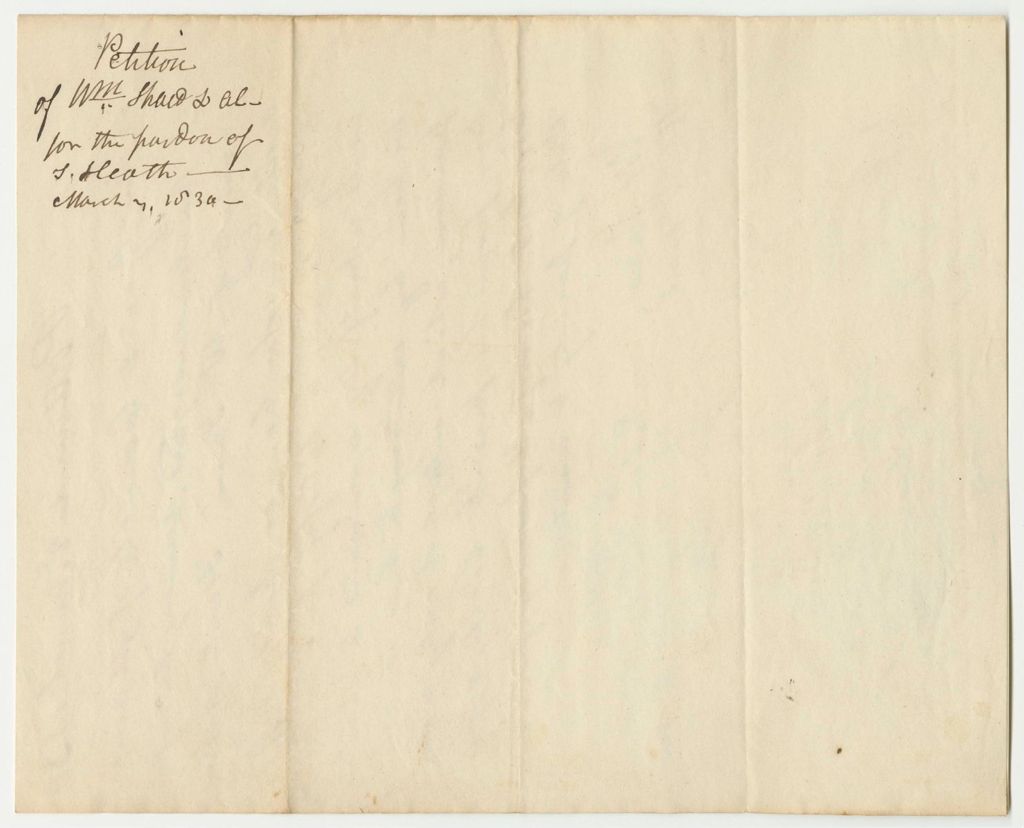 Petition
of Wm. Shaw & al-
for the pardon of
S. Heath —
March 7, 183